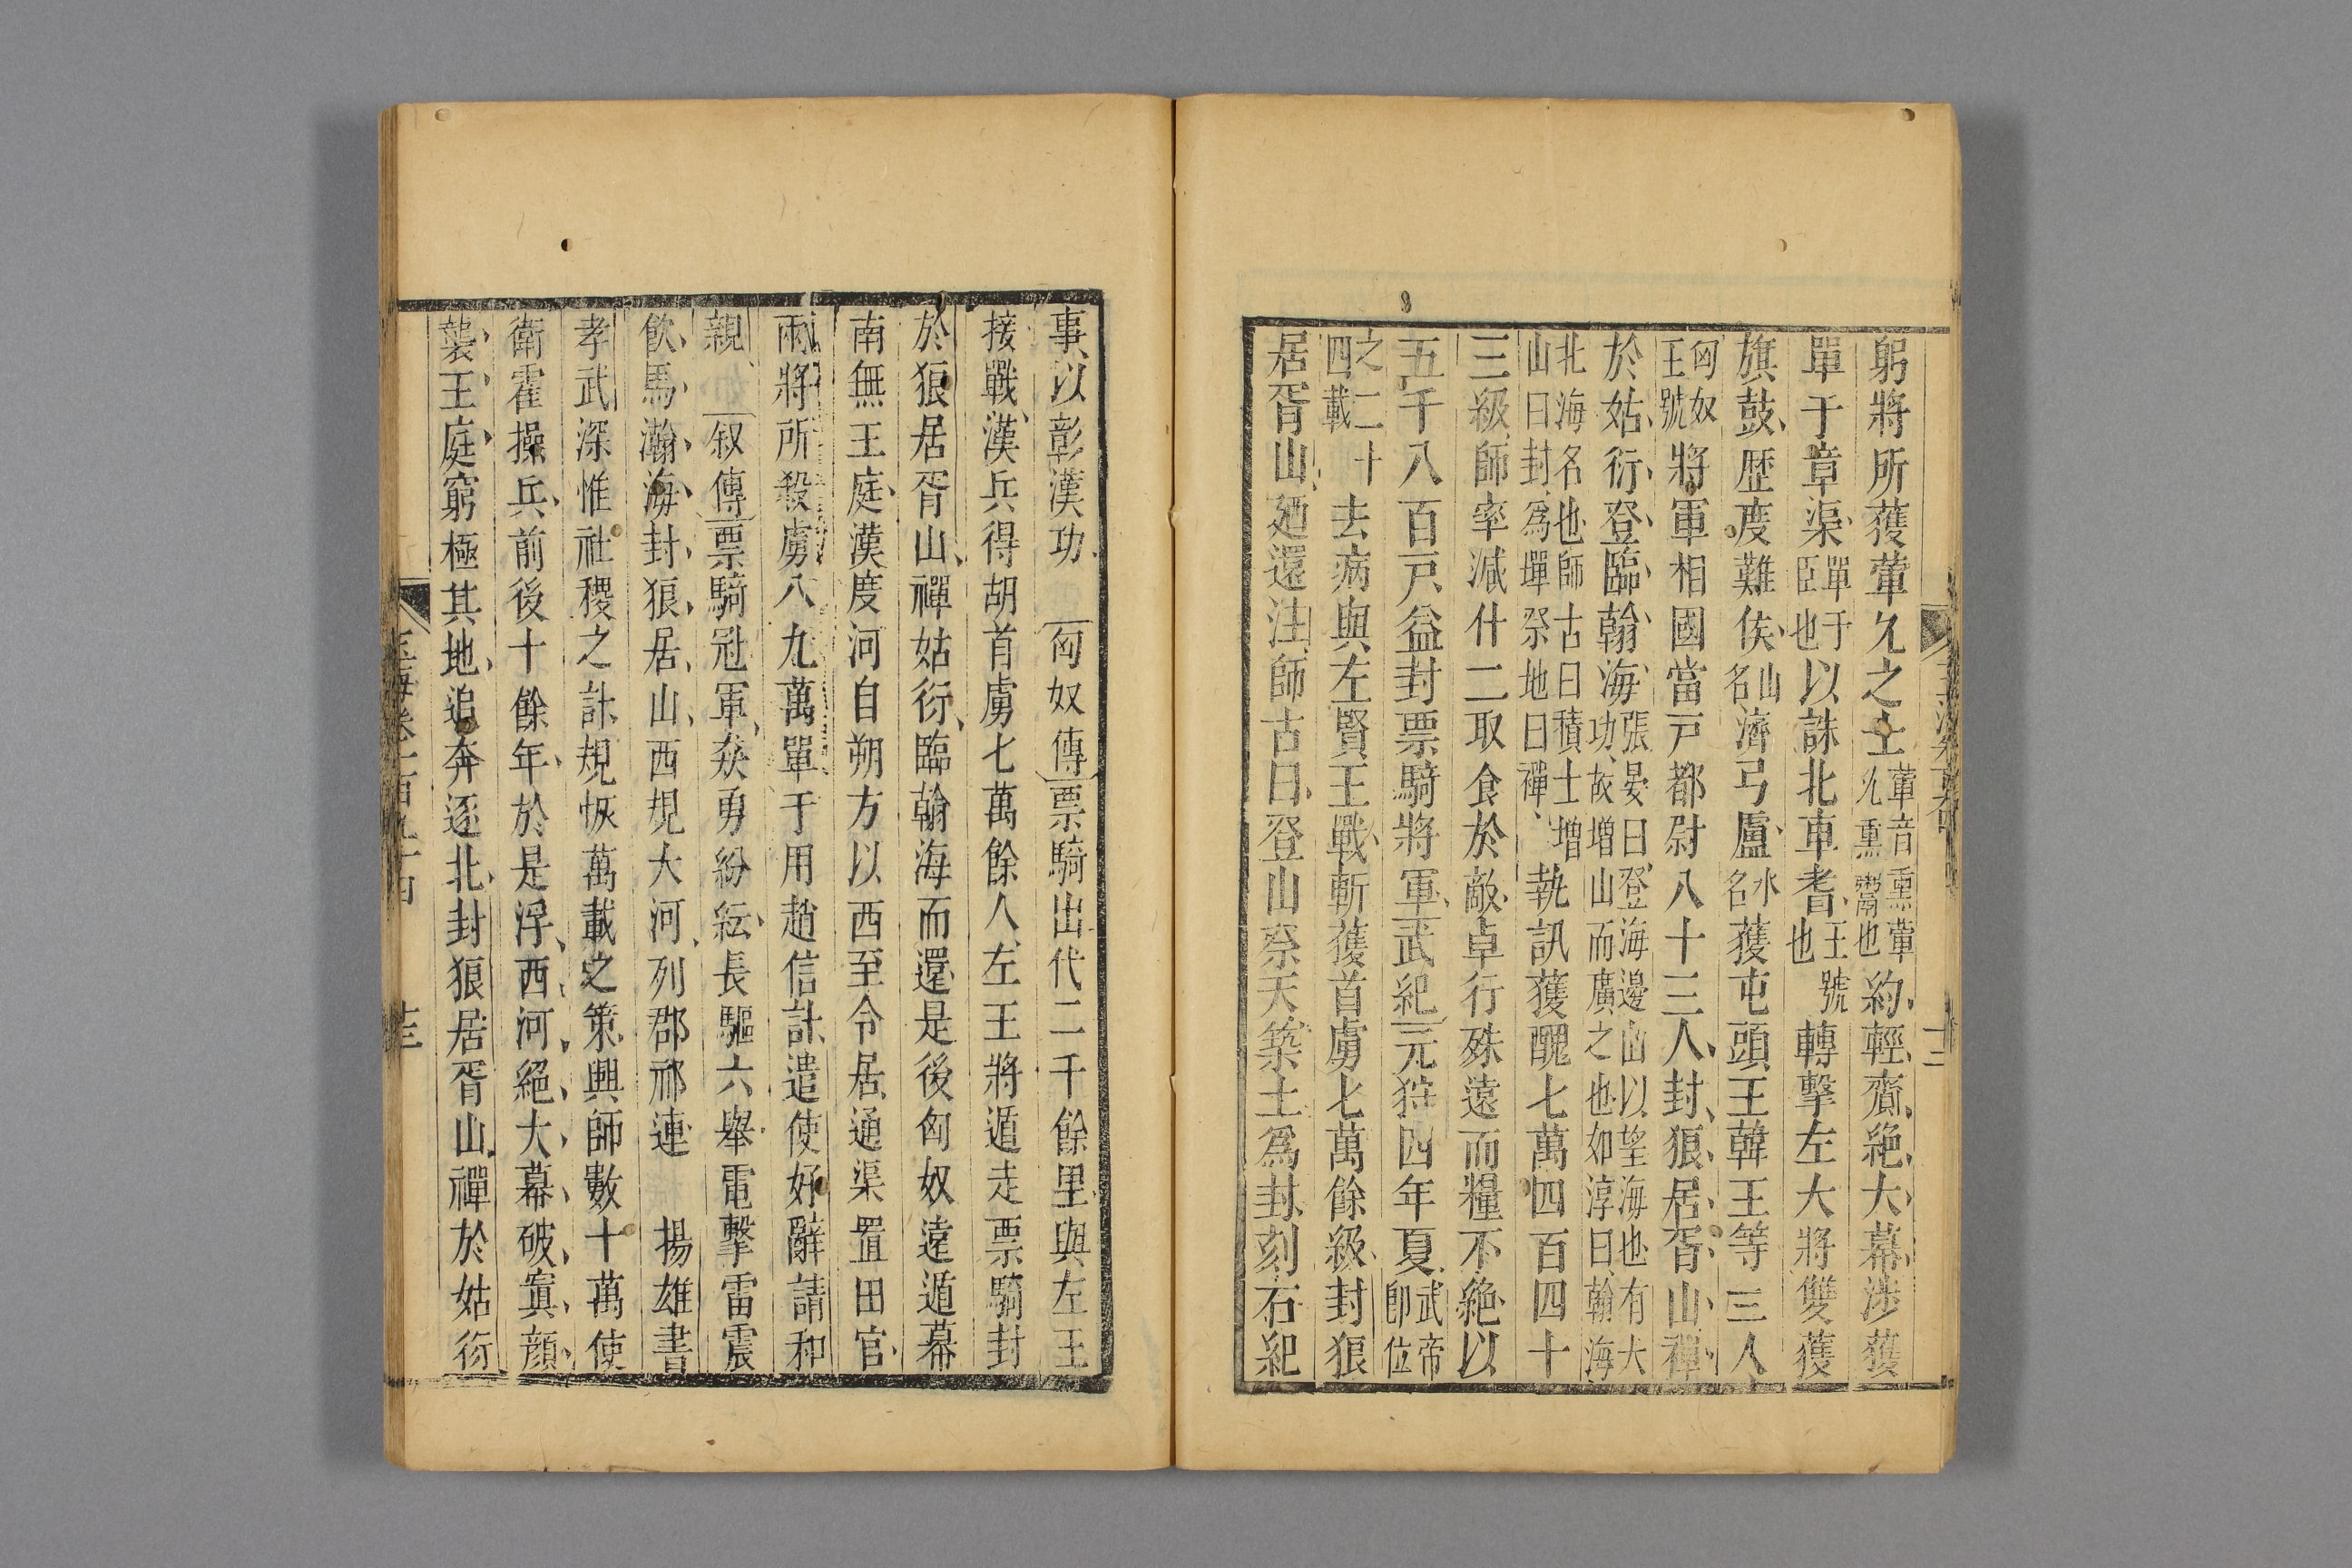 躬將所獲葷允之士葷音熏葷允熏鬻也約輕齎絶大幕涉獲
單于章渠單于臣也以誅北車耆王號也轉擊左大將雙獲
旗鼓歷度難侯山名濟弓盧水名獲屯頭王韓王等三人
匈奴王號將軍相國當戸都尉八十三人封狼居胥山禪
於姑衍登臨翰海張晏曰登海邊山以望海也有大功故增山而廣之也如淳曰翰海
北海名也師古曰積土增山曰封爲墠祭地曰禪執訊獲醜七萬四百四十
三級師率減什二取食於敵卓行殊遠而糧不絶以
五千八百戸益封票騎將軍武紀元狩四年夏武帝即位
之二十四載去病與左賢王戰斬獲首虜七萬餘級封狼
居胥山廼還注師古曰登山祭天築土爲封刻石紀
事以彰漢功匈奴傳票騎出代二千餘里與左王
接戰漢兵得胡首虜七萬餘人左王將遁走票騎封
於狼居胥山禪姑衍臨翰海而還是後匈奴遠遁幕
南無王庭漢度河自朔方以西至令居通渠置田官
兩將所殺虜八九萬單于用趙信計遣使好辭請和
親叙傳票騎冠軍猋勇紛紜長驅六舉電擊雷震
飲馬瀚海封狼居山西規大河列郡祁連揚雄書
孝武深惟社稷之計規恢萬載之策興師數十萬使
衛霍操兵前後十餘年於是浮西河絶大幕破寘顔
襲王庭窮極其地追奔逐北封狼居胥山禪於姑衍